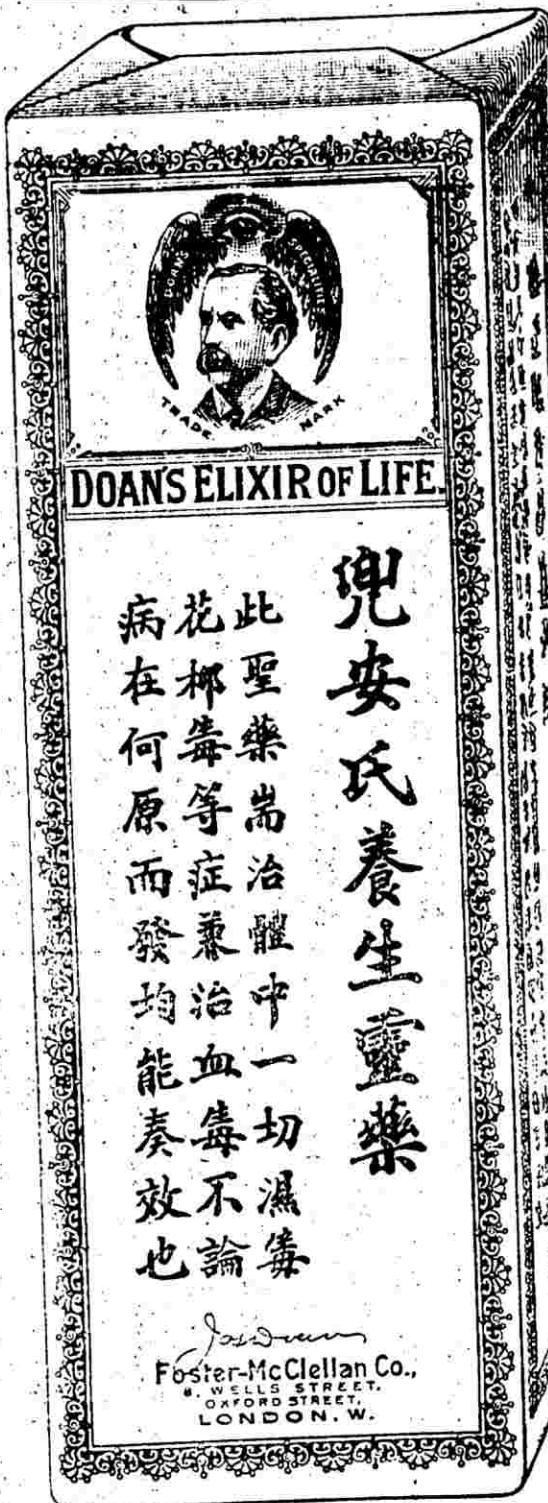 DOAN'S SPECIALITIES
TRADE MARK
DOAN'S ELIXIR OF LIFE.
兜安氏養生靈藥
此聖藥耑治體中一切濕毒
花柳毒等症兼治血毒不論
病在何原而發均能奏效也
Jas Doan
Foster-McClellan Co.,
8, WELLS STREET,
OXFORD STREET,
LONDON. W.